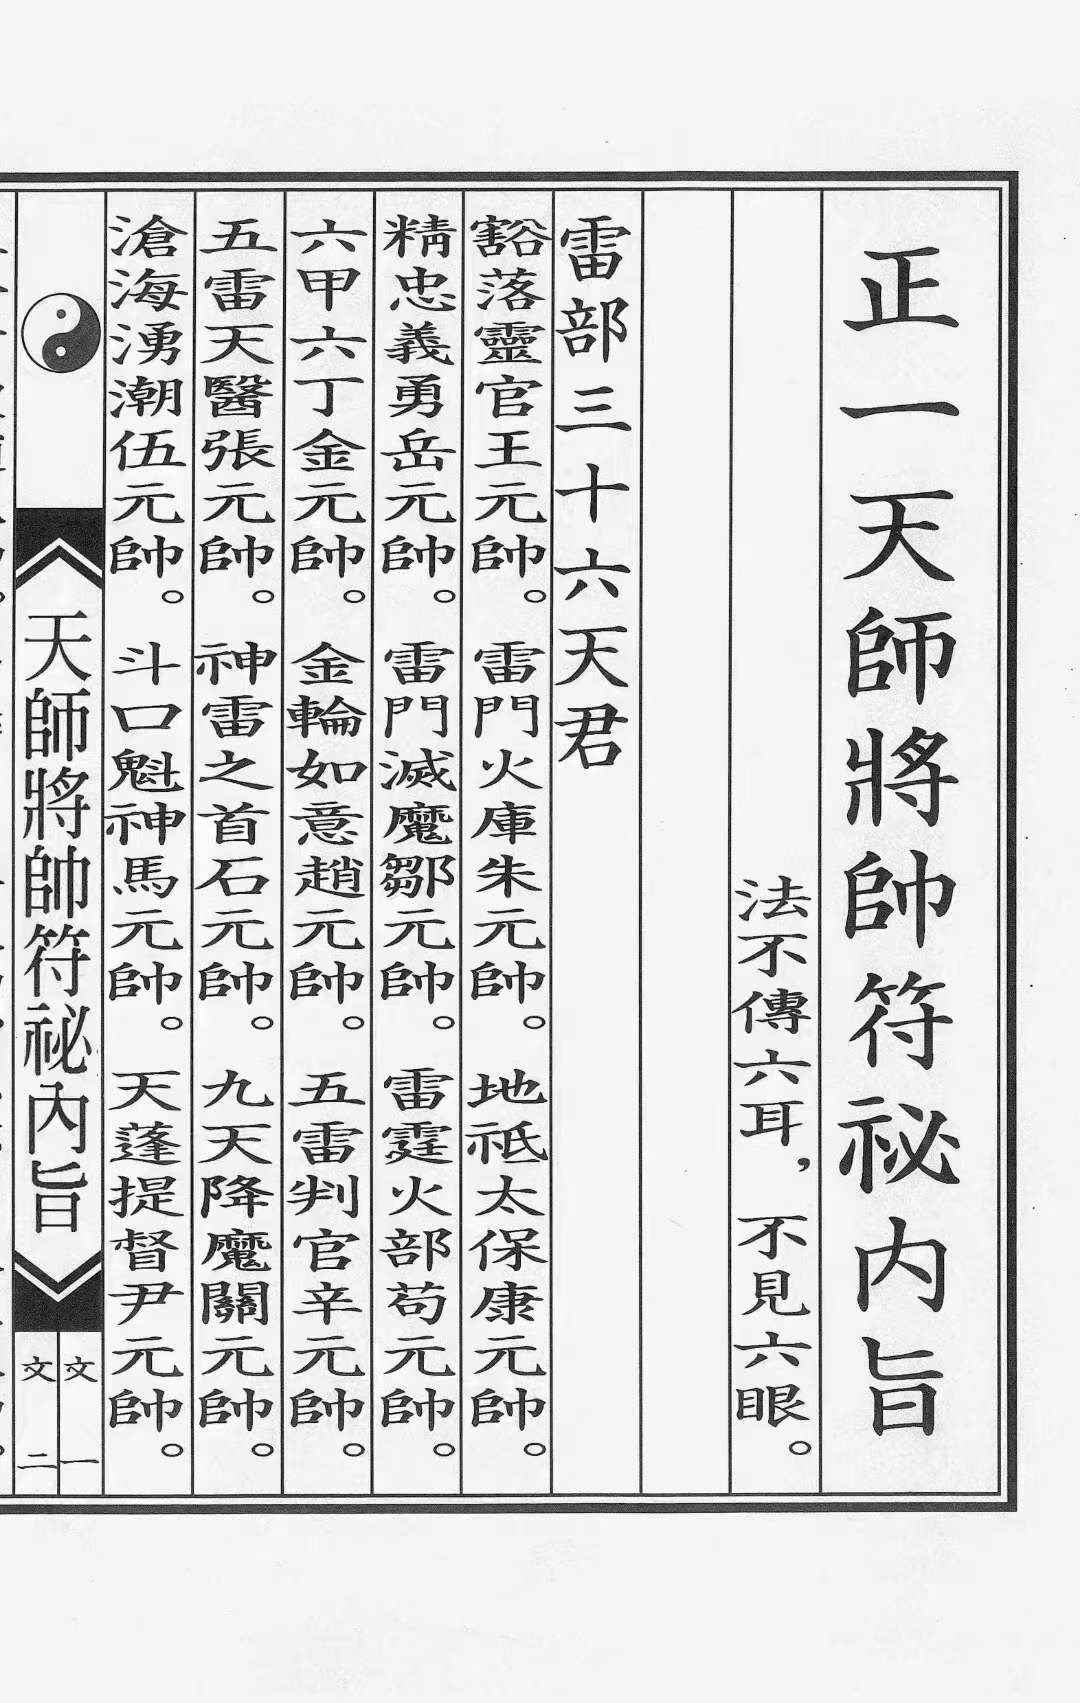 正一天師將帥符祕內旨
法不傳六耳，不見六眼。
雷部三十六天君
豁落靈官王元帥。雷門火庫朱元帥。地祇太保康元帥。
精忠義勇岳元帥。雷門滅魔鄒元帥。雷霆火部茍元帥。
六甲六丁金元帥。金輪如意趙元帥。五雷判官辛元帥。
五雷天醫張元帥。神雷之首石元帥。九天降魔關元帥。
滄海湧潮伍元帥。斗口魁神馬元帥。天蓬提督尹元帥。
天師將帥符祕內旨
文一
文二